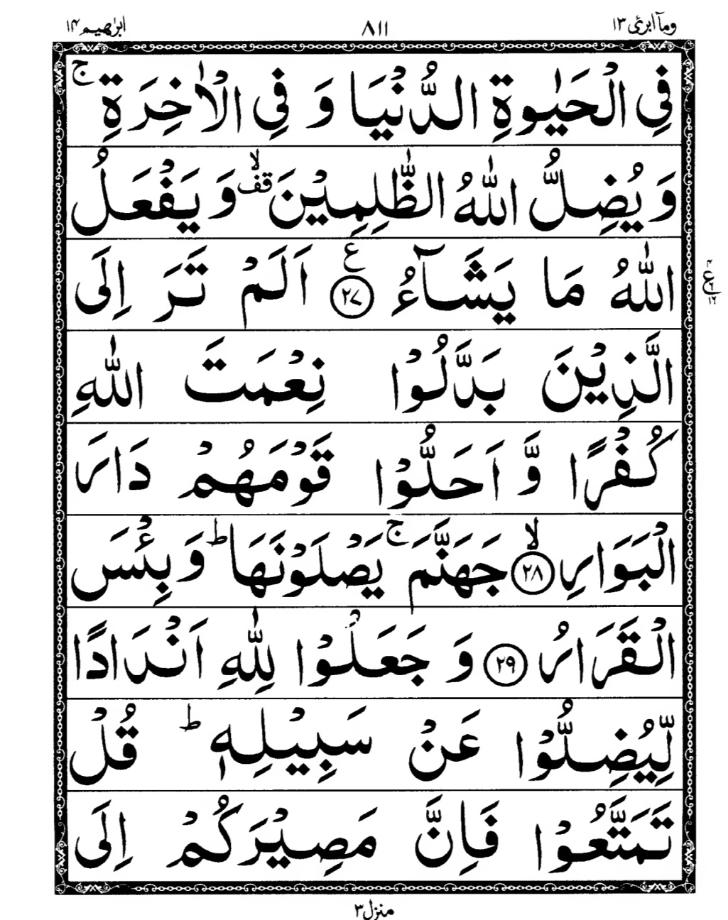 وما ابرئ ۱۳ ۸۱۱ ابرٰهيم ۱۴
فِي الْحَيٰوةِ الدُّنْيَا وَ فِي الْاٰخِرَةِ ۚ
وَ يُضِلُّ اللّٰهُ الظّٰلِمِيْنَ ۙ۫ وَ يَفْعَلُ
اللّٰهُ مَا يَشَآءُ ﴿۲۷﴾ ع اَلَمْ تَرَ اِلَى
الَّذِيْنَ بَدَّلُوْا نِعْمَتَ اللّٰهِ
كُفْرًا وَّ اَحَلُّوْا قَوْمَهُمْ دَارَ
الْبَوَارِ ﴿۲۸﴾ ۙ جَهَنَّمَ ۚ يَصْلَوْنَهَا ؕ وَ بِئْسَ
الْقَرَارُ ﴿۲۹﴾ وَ جَعَلُوْا لِلّٰهِ اَنْدَادًا
لِّيُضِلُّوْا عَنْ سَبِيْلِهٖ ؕ قُلْ
تَمَتَّعُوْا فَاِنَّ مَصِيْرَكُمْ اِلَى
منزل ۳